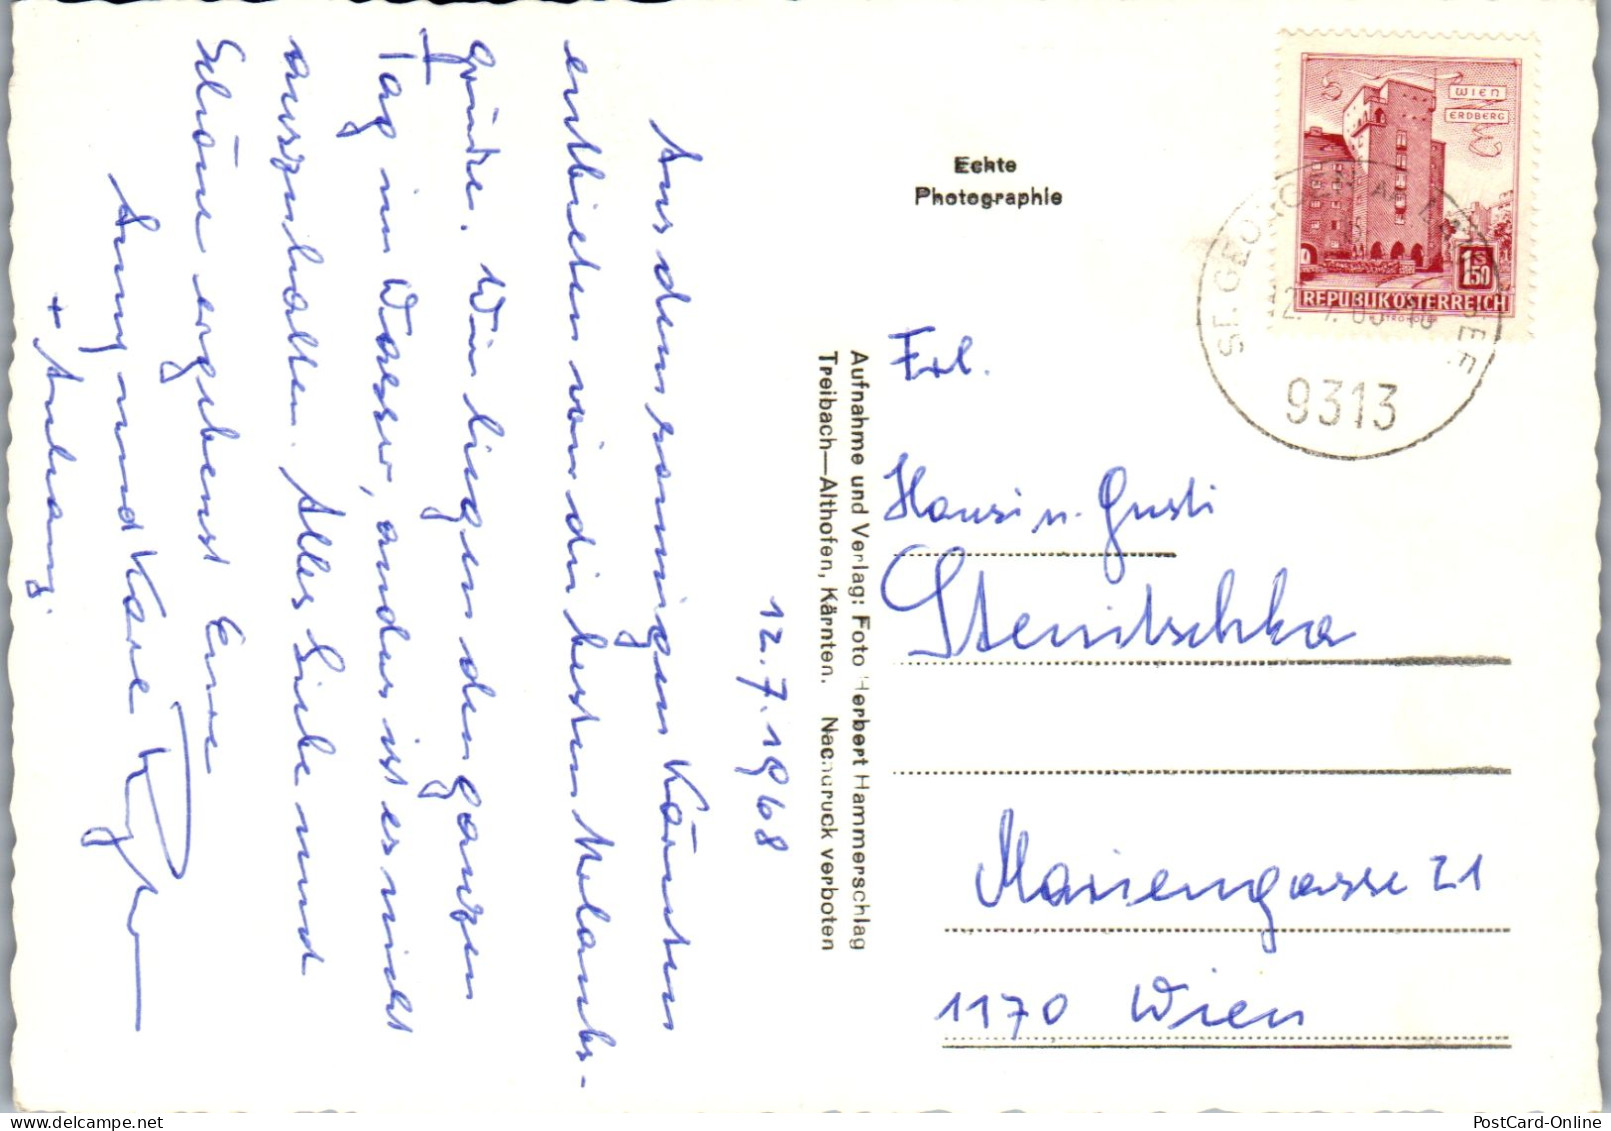 12.7.1968
Aus dem sonnigen Kärnten
entbieten wir die besten Urlaubs-
grüße. Wir liegen den ganzen
Tag im Wasser, anders ist es nicht
auszuhalten. Alles Liebe und
Schöne ergebenst Eure
und Karl
+ Anhang.
Echte
Photographie
Aufnahme und Verlag: Foto Herbert Hammerschlag
Treibach—Althofen, Kärnten. Nachdruck verboten
WIEN
ERDBERG
1S50
REPUBLIK ÖSTERREICH
ST. GEORGEN AM LÄNGSEE
12. 7. 68
9313
Frl.
Hansi u. Gusti
Stenitschka
Mariengasse 21
1170 Wien
PostCard-Online